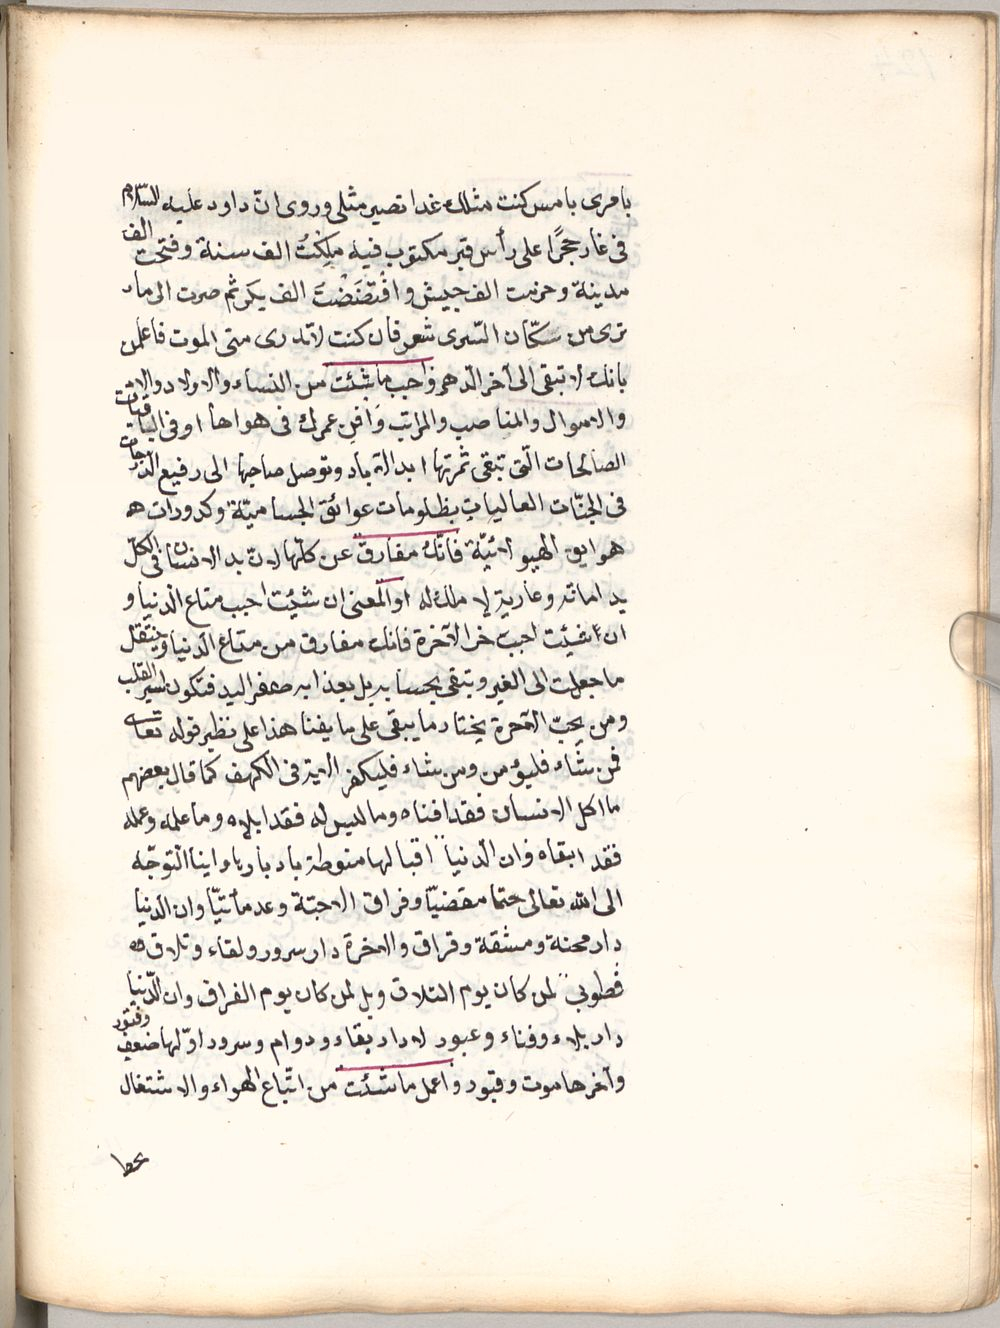 بامرى بامس كنت مثلك غدا تصير مثلى وروى انّ داود عليه السّلام
فى غار حجرًا على رأس قبر مكتوب فيه ملكتُ الف سنة وفتحت الف
مدينة وهزمت الف جيش وافتضضت الف بكر ثم صرت الى ما
ترى من سكّان الثرى شعر فان كنت لا تدرى متى الموت فاعلمن
بانك لا تبقى الى آخر الدهر واحبب ما شئت من النساء والاولاد والاقنيات
والاموال والمناصب والمراتب وافن عمرك فى هواها او فى الباقيات
الصالحات الّتى تبقى ثمرتها ابد الاباد وتوصل صاحبها الى رفيع الدّرجات
فى الجنّات العاليات بظلومات عوائق الجسامنيّة وكدورات
هوايق الهيولانيّة فانّك مفارق عن كلّها لانّ يد الانسان فى الكلّ
يد امانة وعارية لا ملك له او المعنى ان شئت احبب متاع الدنيا و
ان شئت احبب خر الآخرة فانك مفارق من متاع الدنيا وينتقل
ما جعلت الى الغير وتبقى بحسابه بل بعذابه صفر اليد فتكون اسير القلب
ومن يحبّ الآخرة يختار ما يبقى على ما يفنا هذا على نظير قوله تعالى
فمن شاء فليؤمن ومن شاء فليكفر الاية فى الكهف كما قال بعضهم
ما اكل الانسان فقد افناه وما لبس له فقد ابلاه وما علمه وعمله
فقد ابقاه وان الدنيا اقبالها منوطة بادبارها واينا التوجّه
الى الله تعالى حتما مقضيّا وفراق الاحبّة وعد مأتيّا وان الدنيا
دار محنة ومشقة وفراق والاخرة دار سرور ولقاء وتلاق
فطوبى لمن كان يوم التلاق ويل لمن كان يوم الفراق وان الدّنيا
دار بلاء وفناء وعبور لا دار بقاء ودوام وسرور اوّلها ضعف وفتور
وآخرها موت وقبور واعمل ما شئت من اتّباع الهواء والاشتغال